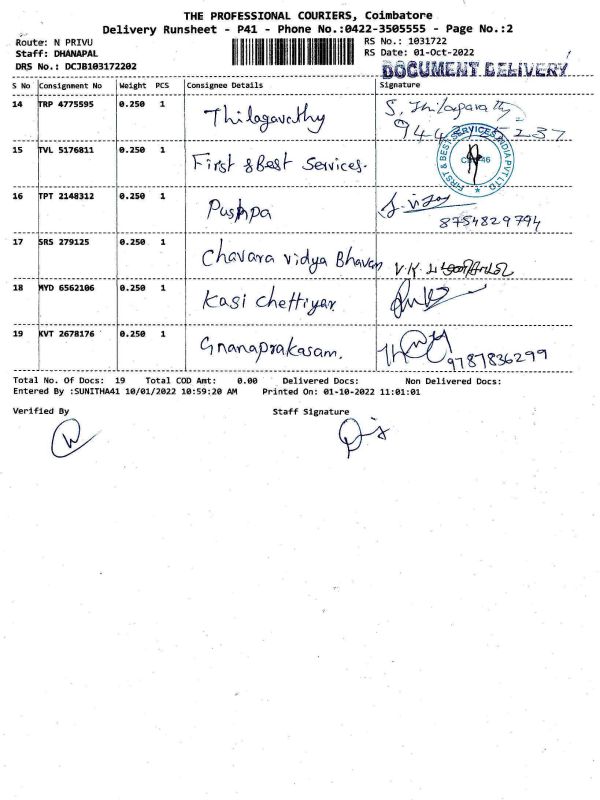 THE PROFESSIONAL COURIERS, Coimbatore
Delivery Runsheet - P41 - Phone No.:0422-3505555 - Page No.:2
Route: N PRIVU
RS No.: 1031722
Staff: DHANAPAL
RS Date: 01-Oct-2022
DRS No.: DCJB103172202
DOCUMENT DELIVERY
S No Consignment No Weight PCS Consignee Details Signature
14 TRP 4775595 0.250 1 Thilagavathy S. Thilagavathy
15 TVL 5176811 0.250 1 First & Best Services. FIRST & BEST SERVICES INDIA PVT LTD
16 TPT 2148312 0.250 1 Pushpa
8754829794
17 SRS 279125 0.250 1 Chavara vidya Bhavan V.K.
18 MYD 6562106 0.250 1 Kasi Chettiyar
19 KVT 2678176 0.250 1 Gnanaprakasam. 9787836299
Total No. Of Docs: 19 Total COD Amt: 0.00 Delivered Docs: Non Delivered Docs:
Entered By :SUNITHA41 10/01/2022 10:59:20 AM Printed On: 01-10-2022 11:01:01
Verified By Staff Signature